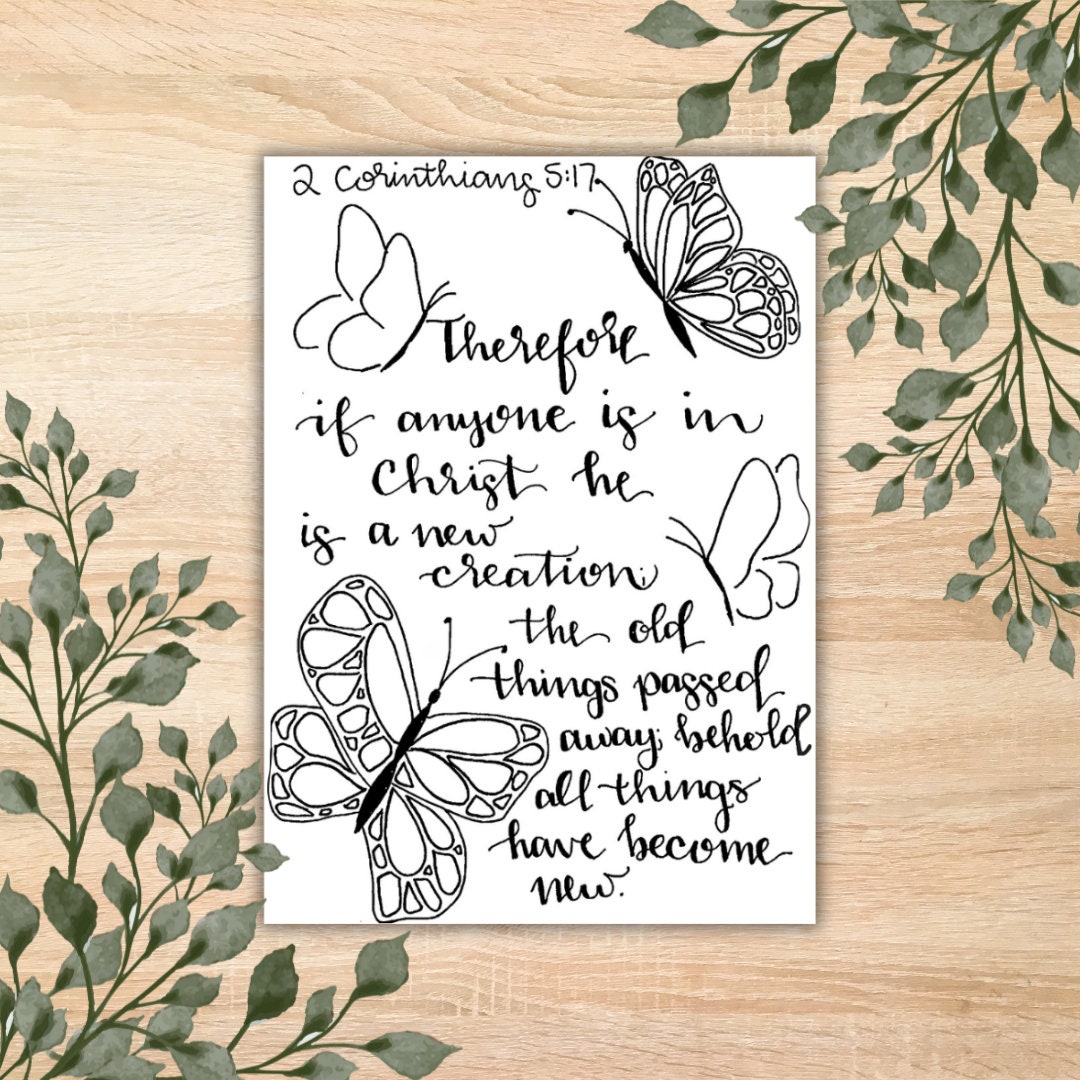 2 Corinthians 5:17
Therefore
if anyone is in
Christ he
is a new
creation;
the old
things passed
away; behold
all things
have become
new.